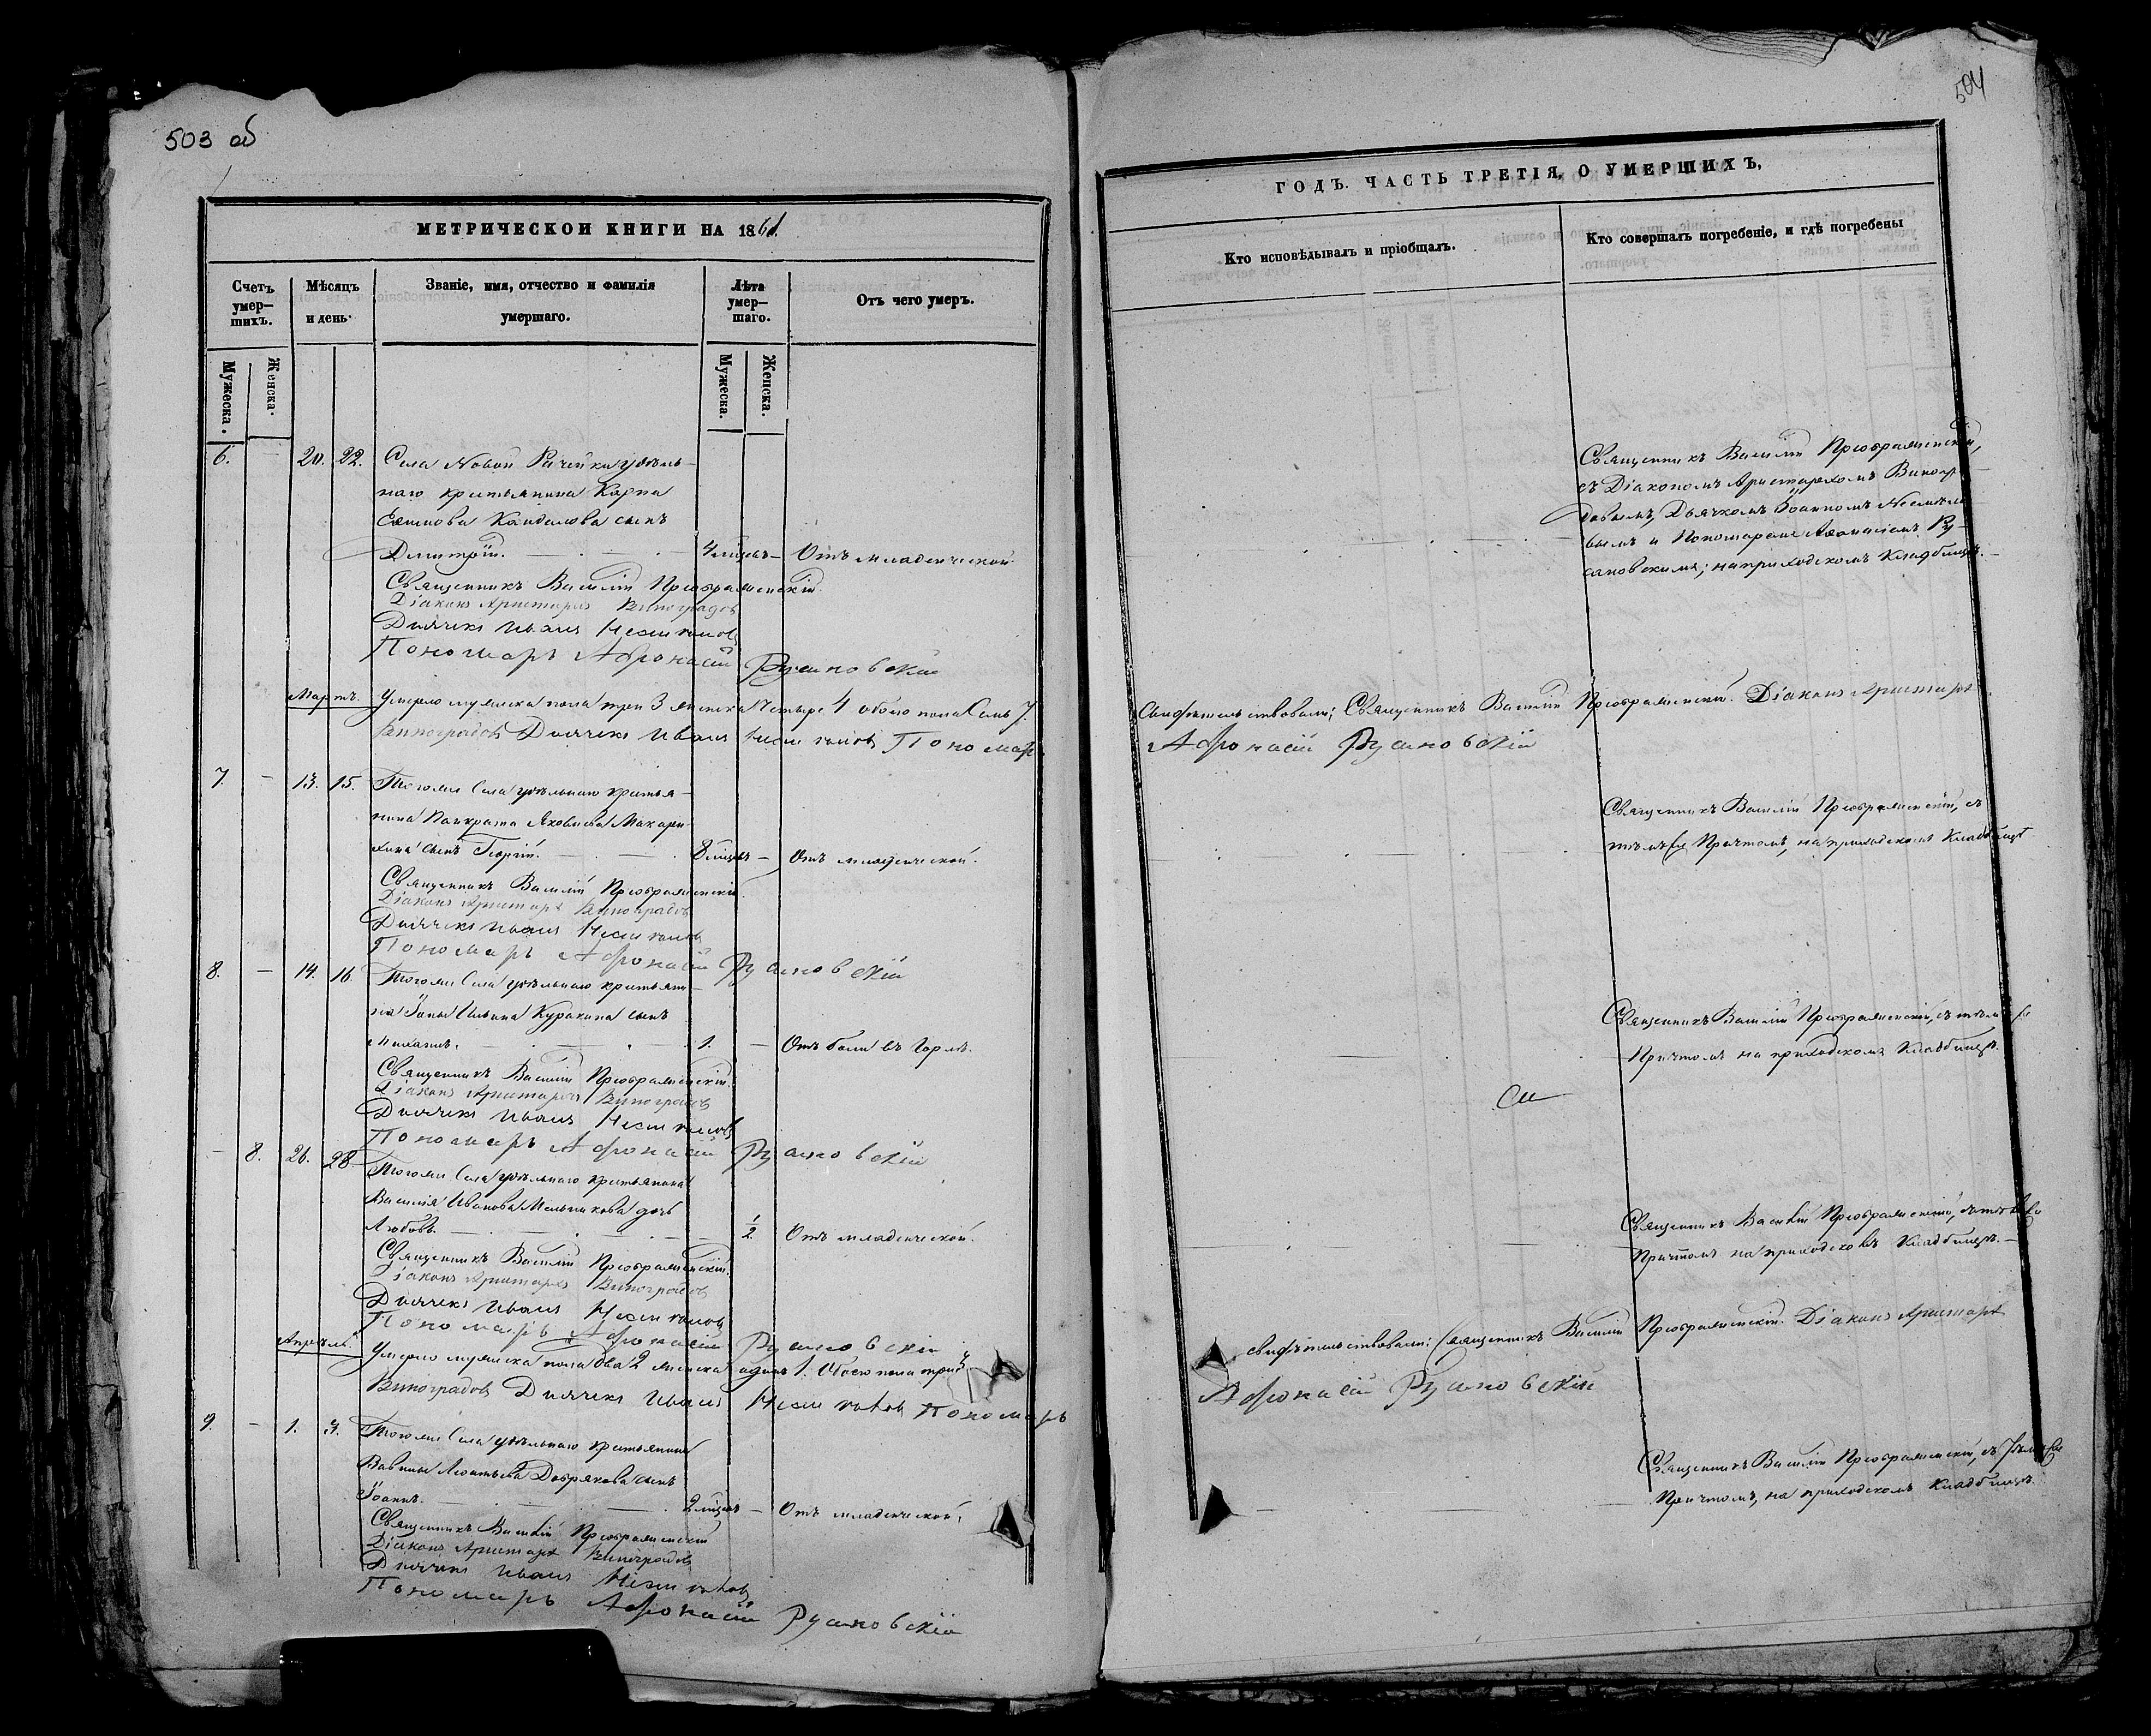 503 об
МЕТРИЧЕСКОЙ КНИГИ НА 1861.
Счетъ умер-шихъ.
Мѣсяцъ и день.
Званіе, имя, отчество и фамилія умершаго.
Лѣта умер-шаго.
Отъ чего умеръ.
Мужеска.
Женска.
Мужеска.
Женска.
6. — 20. 22. Села Новой Рачейки удѣль-
наго крестьянина Карпа
Сынъ
Дмитрій. 4 мѣсяц. — Отъ младенческой.
Священникъ Василій Преображенскій.
Діаконъ Аристархъ Виноградовъ
Дьячекъ Иванъ
Пономарь Афонасій
Мартъ. Умерло мужеска пола три 3 женска четыре 4 обоего пола семь 7.
Виноградовъ Дьячекъ Иванъ Пономарь
7. — 13. 15. Тогоже Села удѣльнаго крестья-
нина Панкрата Яковлева Макари-
хина сынъ Георгій. 8 мѣсяц. — Отъ младенческой.
Священникъ Василій Преображенскій.
Діаконъ Аристархъ Виноградовъ
Дьячекъ Иванъ
Пономарь Афонасій
8. — 14. 16. Тогоже Села удѣльнаго крестьяни-
на Іоны Ильина Куракина сынъ
Михаилъ. 1. — Отъ боли въ горлѣ.
Священникъ Василій Преображенскій.
Діаконъ Аристархъ Виноградовъ
Дьячекъ Иванъ
Пономарь Афонасій
— 8. 26. 28. Тогоже Села удѣльнаго крестьянина
Василія Иванова Мельникова дочь
Любовь. — 1/2 Отъ младенческой.
Священникъ Василій Преображенскій.
Діаконъ Аристархъ Виноградовъ
Дьячекъ Иванъ
Пономарь Афонасій
Апрѣль. Умерло мужеска пола два 2 женска одна 1. Обоего пола три 3
Виноградовъ Дьячекъ Иванъ Пономарь
9. — 1. 3. Тогоже Села удѣльнаго крестьянина
Вавилы Добрякова сынъ
Іоаннъ. 2 мѣсяц. — Отъ младенческой.
Священникъ Василій Преображенскій
Діаконъ Аристархъ Виноградовъ
Дьячекъ Иванъ
Пономарь Афонасій
504
ГОДЪ. ЧАСТЬ ТРЕТІЯ, О УМЕРШИХЪ,
Кто исповѣдывалъ и пріобщалъ.
Кто совершалъ погребеніе, и гдѣ погребены
Священникъ Василій Преображенскій,
съ Діакономъ Аристархомъ Виногра-
довымъ, Дьячкомъ Іоанномъ
вымъ и Пономаремъ Аѳанасіемъ
на приходскомъ кладбищѣ.
Свидѣтельствовали; Священникъ Василій Преображенскій. Діаконъ Аристархъ
Афонасій
Священникъ Василій Преображенскій, съ
тѣмъ же Причтомъ, на приходскомъ кладбищѣ
Священникъ Василій Преображенскій, съ тѣмъ же
Причтомъ на приходскомъ кладбищѣ.
Священникъ Василій Преображенскій, съ тѣмъ же
Причтомъ на приходскомъ кладбищѣ.
свидѣтельствовали: Священникъ Василій Преображенскій. Діаконъ Аристархъ
Афонасій
Священникъ Василій Преображенскій, съ тѣмъ же
Причтомъ, на приходскомъ кладбищѣ.